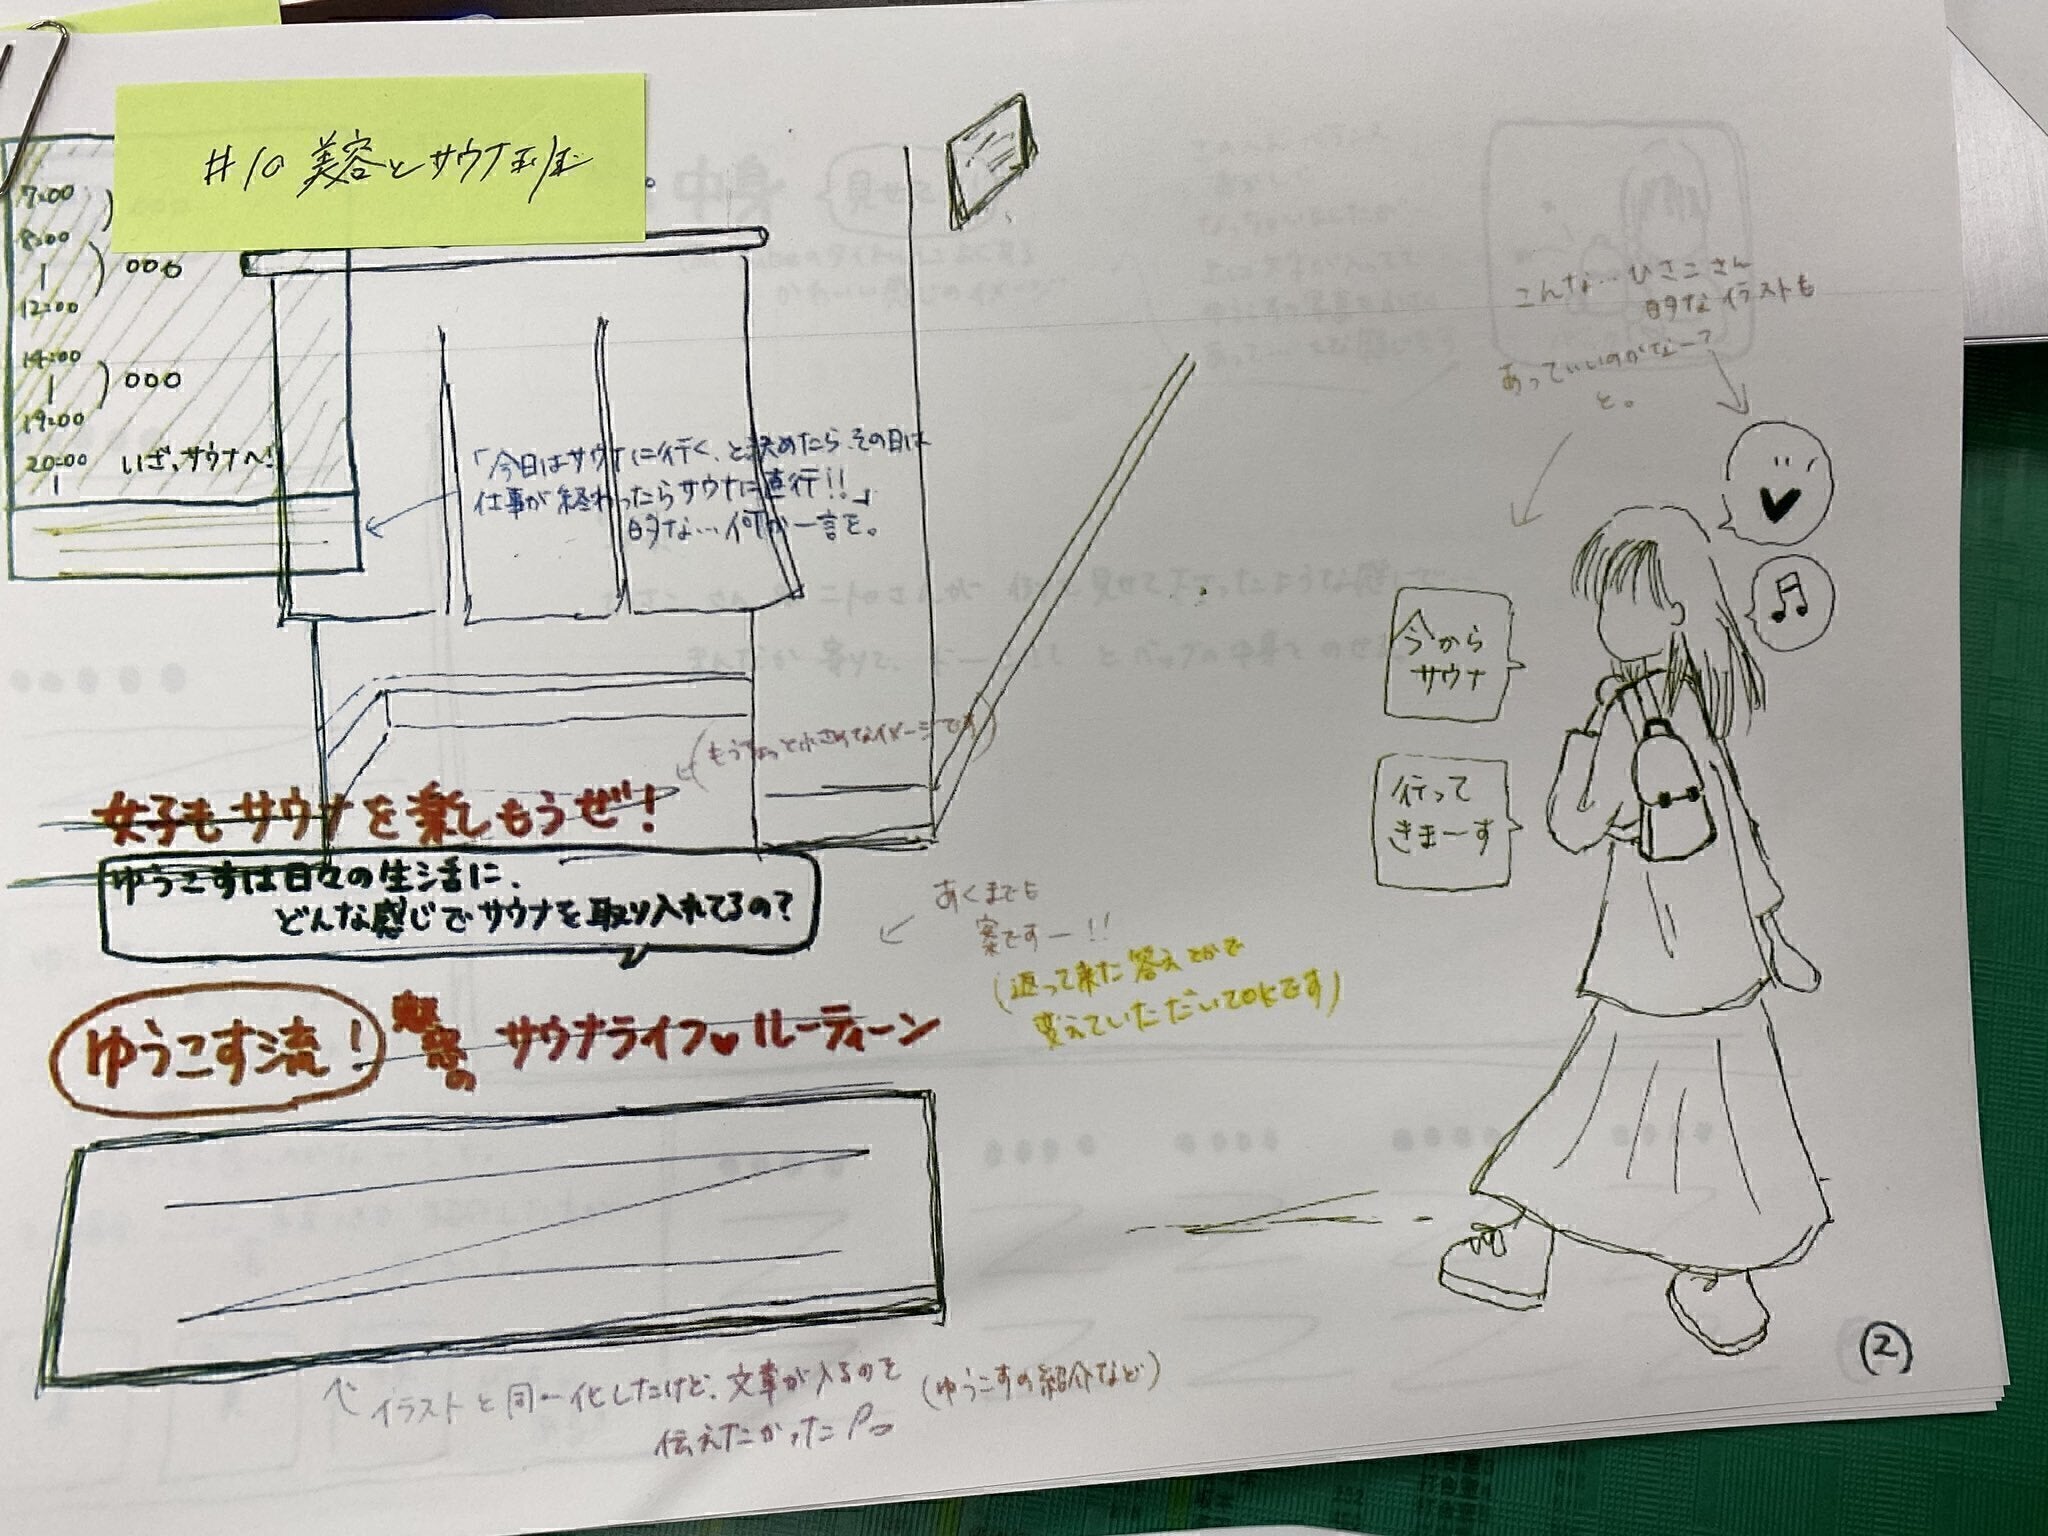 #10 美容とサウナ
7:00
8:00
000
12:00
14:00
000
19:00
20:00 いざ、サウナへ!
「今日はサウナに行く、と決めたら、その日は
仕事が終わったらサウナに直行!!」
的な…何か一言を。
こんな…ひさこさん
的なイラストも
あっていいのかなー?
と。
今から
サウナ
行って
きまーす
(もうちょっと小さめなイメージです)
女子もサウナを楽しもうぜ!
ゆうこすは日々の生活に、
どんな感じでサウナを取り入れてるの?
あくまでも
案ですー!!
(返って来た答えとかで
変えていただいてOKです)
ゆうこす流!
魅惑の
サウナライフ♥ルーティーン
イラストと同一化したけど、文章が入るのを
伝えたかった
(ゆうこすの紹介など)
②